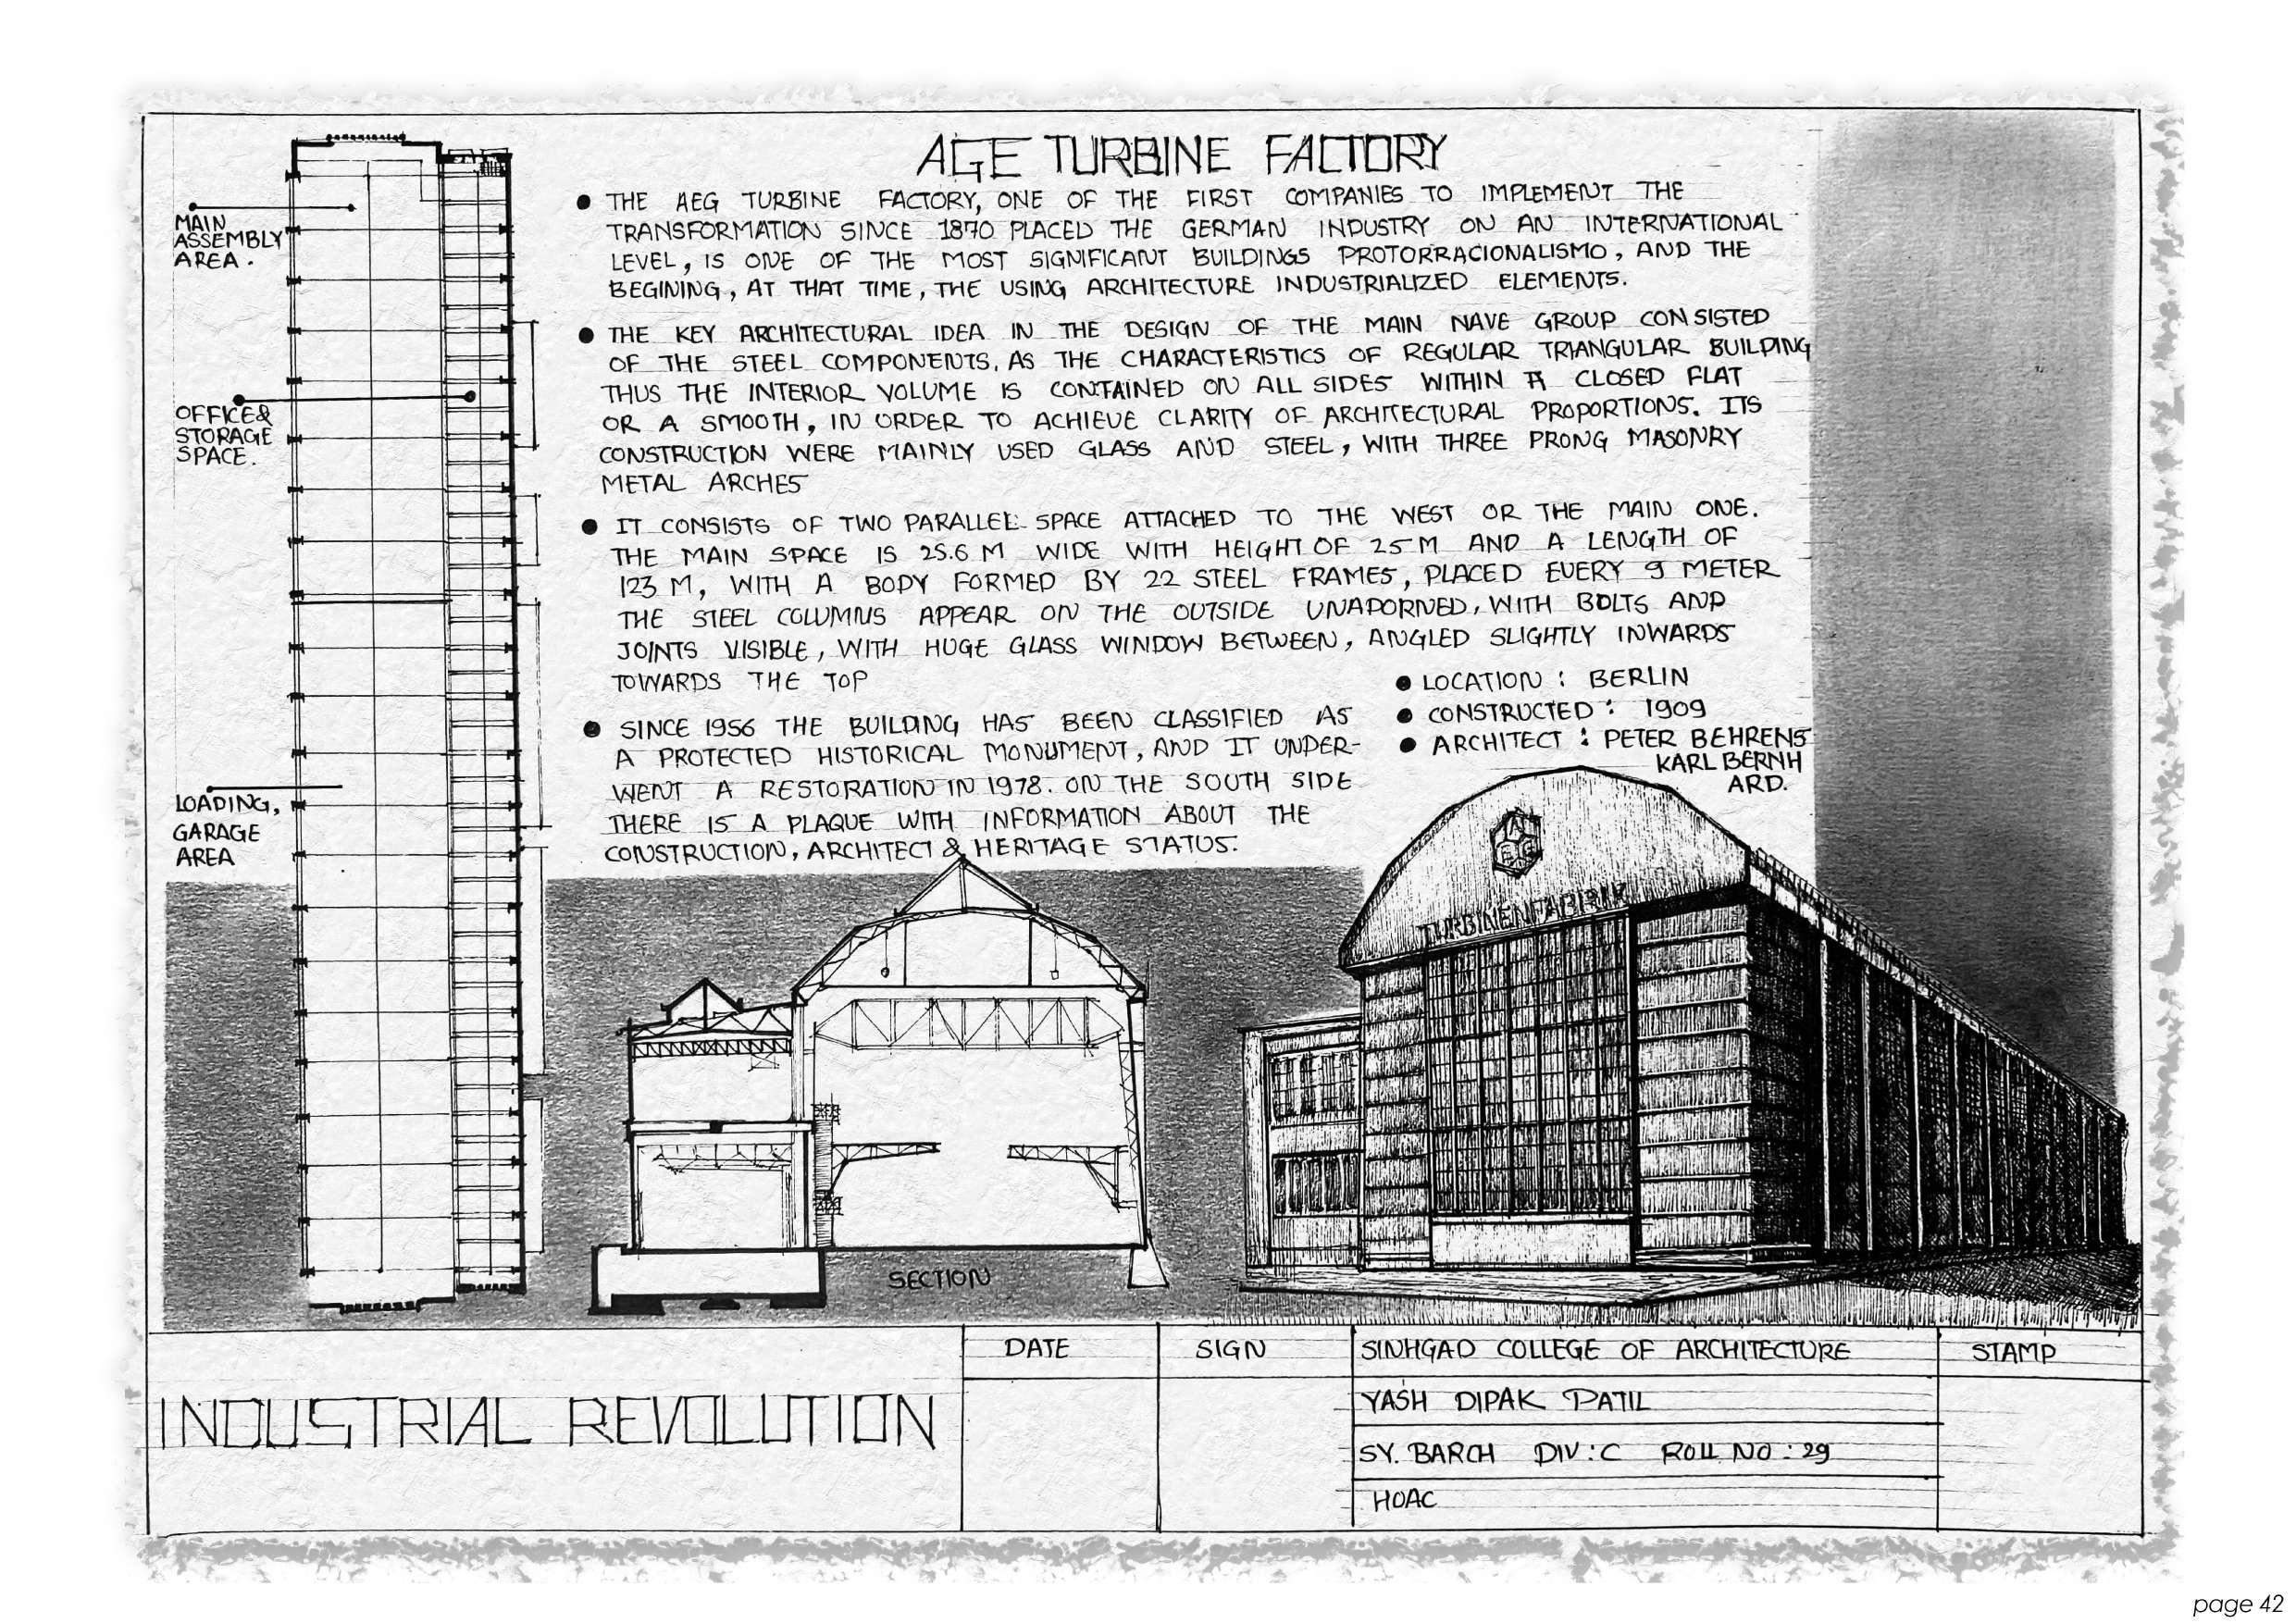 AGE TURBINE FACTORY
● THE AEG TURBINE FACTORY, ONE OF THE FIRST COMPANIES TO IMPLEMENT THE
TRANSFORMATION SINCE 1870 PLACED THE GERMAN INDUSTRY ON AN INTERNATIONAL
LEVEL, IS ONE OF THE MOST SIGNIFICANT BUILDINGS PROTORRACIONALISMO, AND THE
BEGINING, AT THAT TIME, THE USING ARCHITECTURE INDUSTRIALIZED ELEMENTS.
● THE KEY ARCHITECTURAL IDEA IN THE DESIGN OF THE MAIN NAVE GROUP CONSISTED
OF THE STEEL COMPONENTS. AS THE CHARACTERISTICS OF REGULAR TRIANGULAR BUILDING
THUS THE INTERIOR VOLUME IS CONTAINED ON ALL SIDES WITHIN A CLOSED FLAT
OR A SMOOTH, IN ORDER TO ACHIEVE CLARITY OF ARCHITECTURAL PROPORTIONS. ITS
CONSTRUCTION WERE MAINLY USED GLASS AND STEEL, WITH THREE PRONG MASONRY
METAL ARCHES
● IT CONSISTS OF TWO PARALLEL SPACE ATTACHED TO THE WEST OR THE MAIN ONE.
THE MAIN SPACE IS 25.6 M WIDE WITH HEIGHT OF 25 M AND A LENGTH OF
123 M, WITH A BODY FORMED BY 22 STEEL FRAMES, PLACED EVERY 9 METER
THE STEEL COLUMNS APPEAR ON THE OUTSIDE UNADORNED, WITH BOLTS AND
JOINTS VISIBLE, WITH HUGE GLASS WINDOW BETWEEN, ANGLED SLIGHTLY INWARDS
TOWARDS THE TOP
● SINCE 1956 THE BUILDING HAS BEEN CLASSIFIED AS
A PROTECTED HISTORICAL MONUMENT, AND IT UNDER-
WENT A RESTORATION IN 1978. ON THE SOUTH SIDE
THERE IS A PLAQUE WITH INFORMATION ABOUT THE
CONSTRUCTION, ARCHITECT & HERITAGE STATUS.
● LOCATION : BERLIN
● CONSTRUCTED : 1909
● ARCHITECT : PETER BEHRENS
KARL BERNH
ARD.
MAIN
ASSEMBLY
AREA.
OFFICE &
STORAGE
SPACE.
LOADING,
GARAGE
AREA
A
EG
TURBINENFABRIK
SECTION
INDUSTRIAL REVOLUTION
DATE
SIGN
SINHGAD COLLEGE OF ARCHITECTURE
YASH DIPAK PATIL
SY. BARCH DIV : C ROLL NO : 29
HOAC
STAMP
page 42